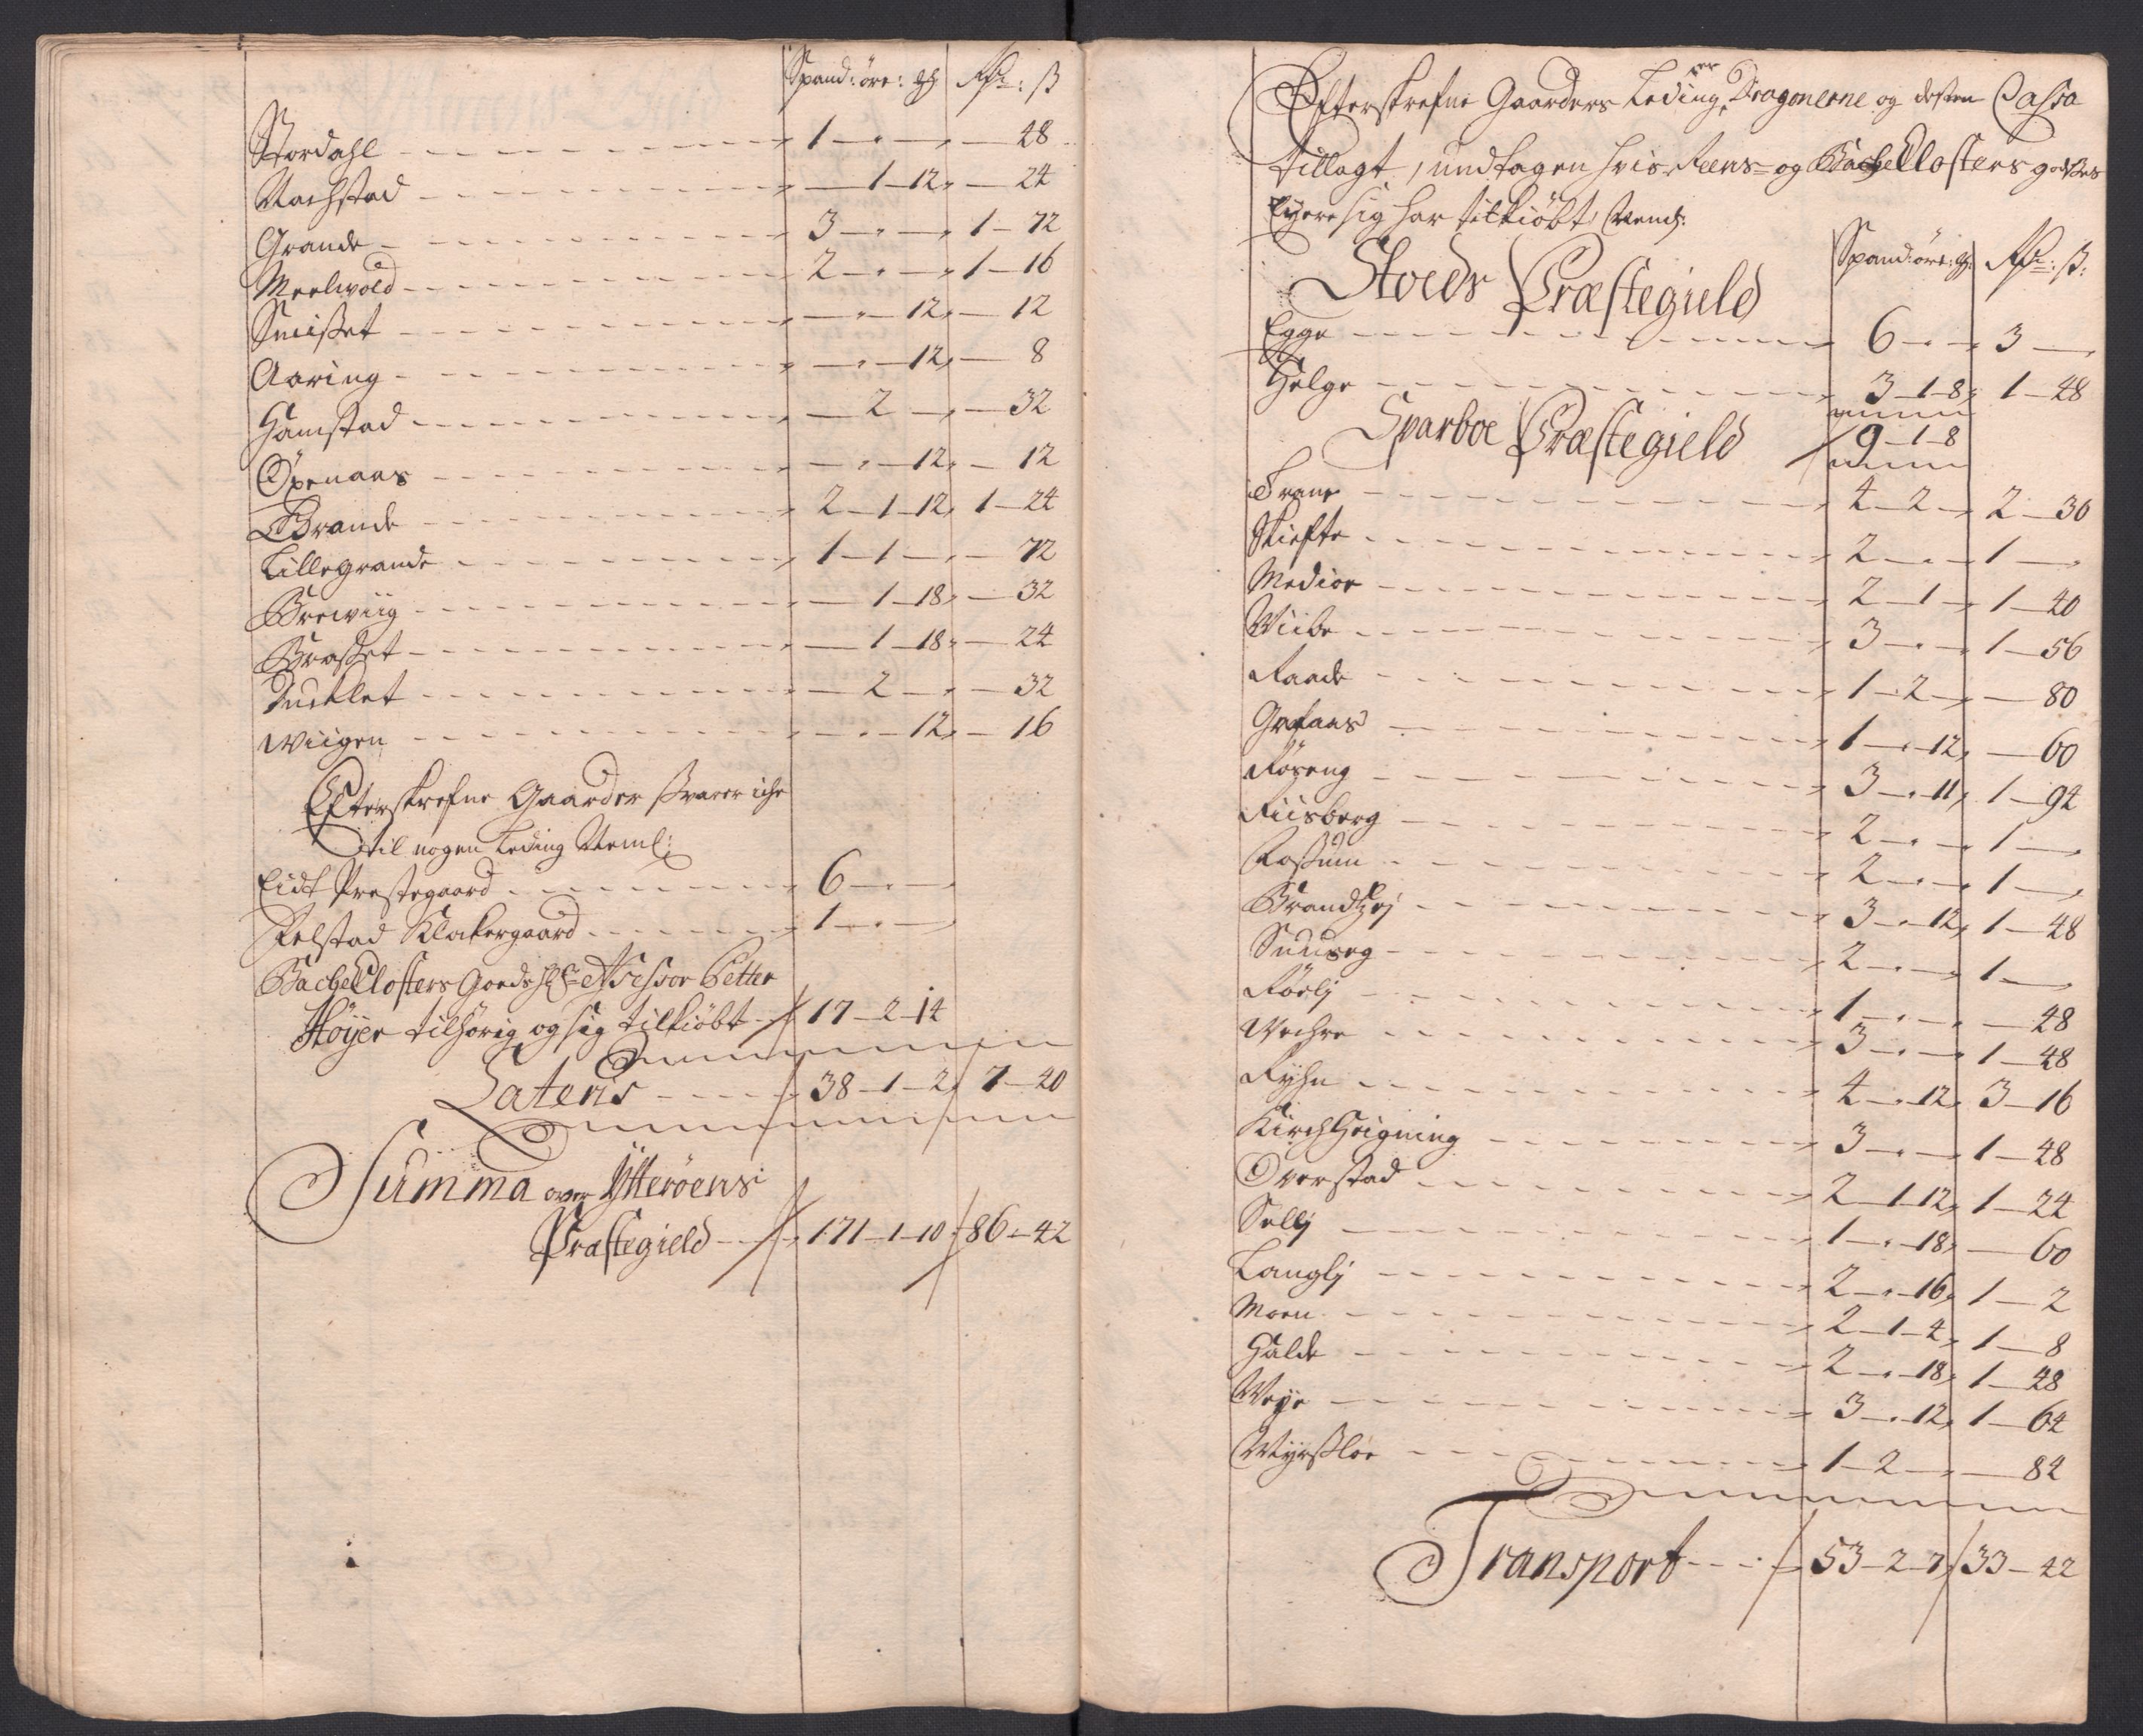 Spand: öre: ₰ Rdr: ß
Stordahl 1 — — 48
Rachstad — 1 — 12 — 24
Grande 3 — — 1 — 72
Meelwold 2 — — 1 — 16
Smißet — — 12 — 12
Aaring — — 12 — 8
Hamstad — 2 — — 32
Öxenaas — — 12 — 12
Brande 2 — 1 — 12 1 — 24
Lillegrande 1 — 1 — — 72
Brewiig — 1 — 18 — 32
Braßet — 1 — 18 — 24
— 2 — — 32
Wiigen — — 12 — 16
Efterskrefne Gaarder svarer iche
til nogen Leding Neml:
Eidt Prestegaard 6 — —
Relstad Klockergaard 1 — —
BacheClosters Goeds Assessor Petter
Höyer tilhörig og sig tilkiöbt 17 — 2 — 14
Lateris 38 — 1 — 2 7 — 40
Summa over Ytterøens
Præstegield 171 — 1 — 10 86 — 42
Efterskrefne Gaarders Leding er Dragonerne og desten Cassa
tillagt, undtagen hvis Reens- og BacheClosters godtzes
Eyere sig har tilkiöbt, Neml:
Spand: öre: ₰ Rdr: ß:
Stoeds Præstegield
Egge 6 — — 3 —
Helge 3 — 1 — 8 1 — 48
9 — 1 — 8
Sparboe Præstegield
Trane 4 — 2 — 2 — 36
Skiefte 2 — — 1 —
Medioe 2 — 1 — 1 — 40
Wiibe 3 — — 1 — 56
Raade 1 — 2 — — 80
Grafaas 1 — 12 — 60
Röseng 3 — 11 1 — 94
Riisberg 2 — — 1 —
Roßum 2 — — 1 —
Brandtzej 3 — 12 1 — 48
2 — — 1 —
Röelj 1 — — — 48
Wechre 3 — — 1 — 48
Ryhn 4 — 12 3 — 16
KirchHeigning 3 — — 1 — 48
Overstad 2 — 1 — 12 1 — 24
Sellj 1 — 18 — 60
Langlj 2 — 16 1 — 2
Moen 2 — 1 — 4 1 — 8
Halde 2 — 18 1 — 48
Weye 3 — 12 1 — 64
1 — 2 — — 84
Transport 53 — 2 — 7 33 — 42